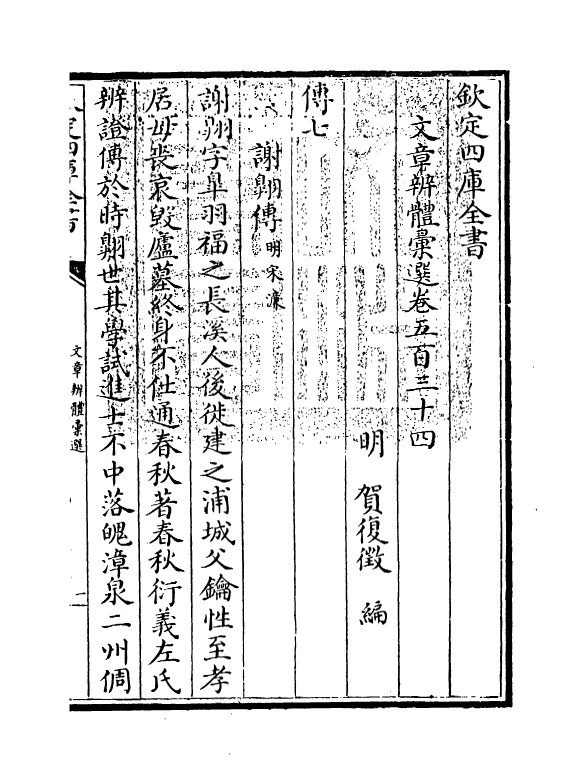 欽定四庫全書
文章辨體彙選卷五百三十四
明　賀復徵　編
傳七
謝翺傳明宋濂
謝翺字臯羽福之長溪人後徙建之浦城父鑰性至孝
居母喪哀毀廬墓終身不仕通春秋著春秋衍義左氏
辨證傳於時翺世其學試進士不中落魄漳泉二州倜
文章辨體彙選